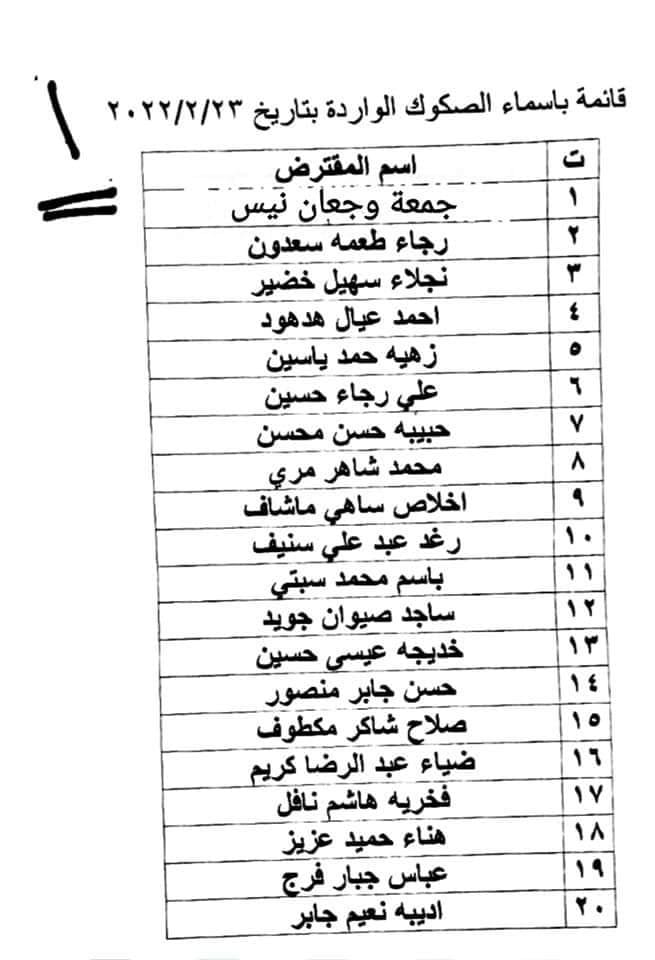 قائمة باسماء الصكوك الواردة بتاريخ ٢٠٢٢/٢/٢٣
١
ت اسم المقترض
١ جمعة وجعان نيس
٢ رجاء طعمه سعدون
٣ نجلاء سهيل خضير
٤ احمد عيال هدهود
٥ زهيه حمد ياسين
٦ علي رجاء حسين
٧ حبيبه حسن محسن
٨ محمد شاهر مري
٩ اخلاص ساهي ماشاف
١٠ رغد عبد علي سنيف
١١ باسم محمد سبتي
١٢ ساجد صيوان جويد
١٣ خديجه عيسى حسين
١٤ حسن جابر منصور
١٥ صلاح شاكر مكطوف
١٦ ضياء عبد الرضا كريم
١٧ فخريه هاشم نافل
١٨ هناء حميد عزيز
١٩ عباس جبار فرج
٢٠ اديبه نعيم جابر